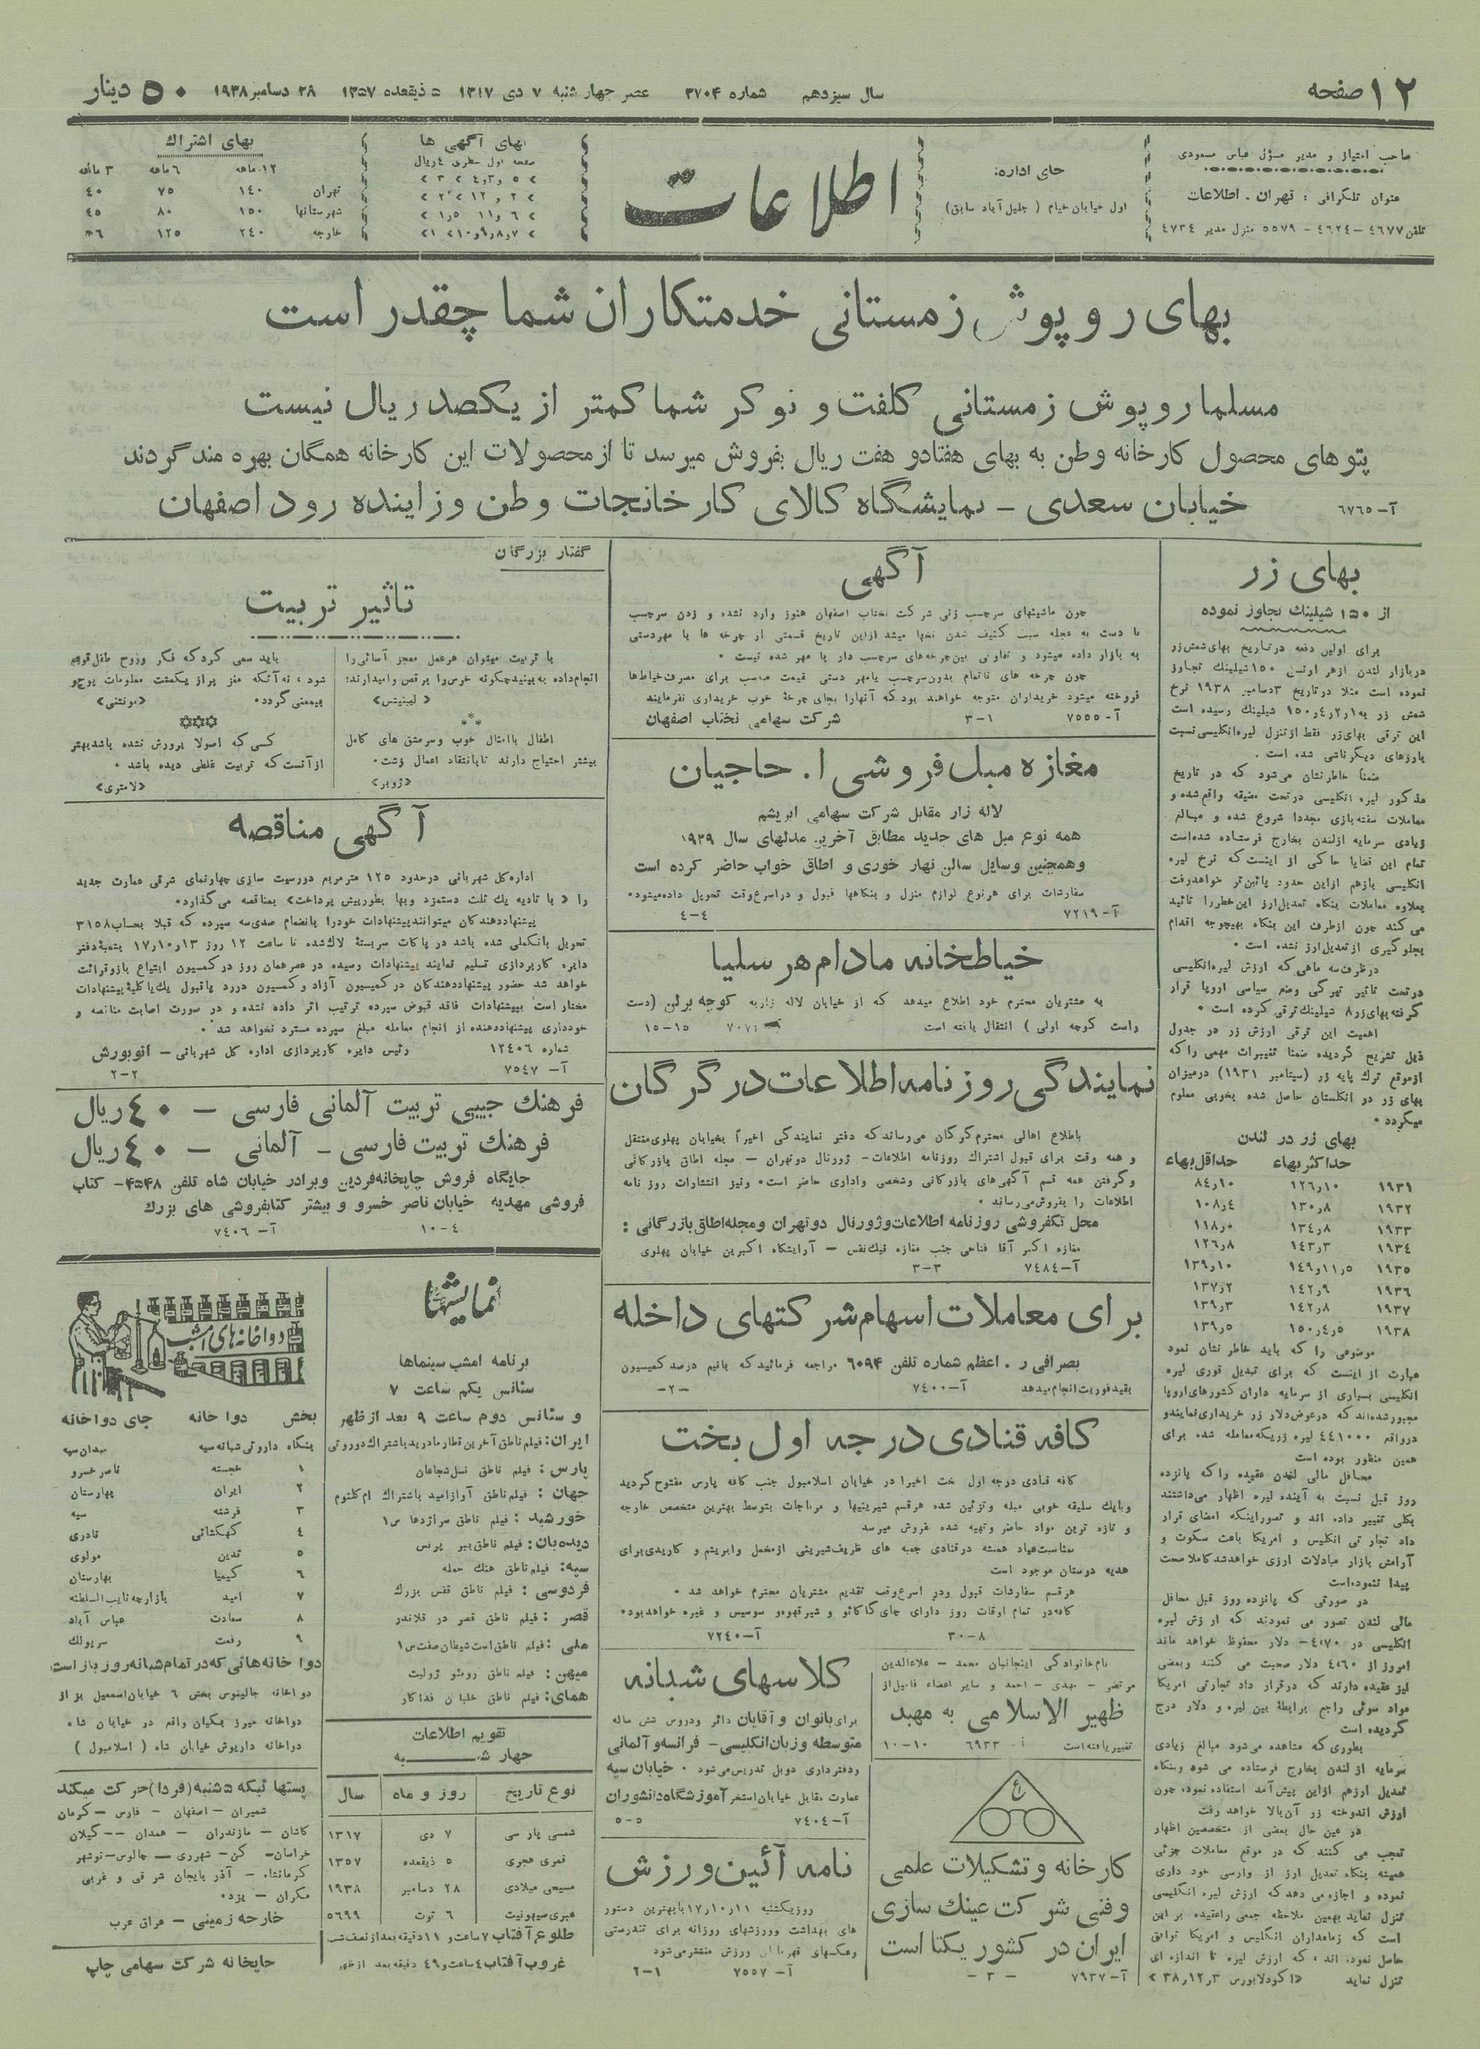 ۱۲ صفحه
سال سیزدهم شماره ۳۷۰۴ عصر چهار شنبه ۷ دی ۱۳۱۷ ۵ ذیقعده ۱۳۵۷ ۲۸ دسامبر ۱۹۳۸
۵۰ دینار
صاحب امتیاز و مدیر مسؤل عباس مسعودی
عنوان تلگرافی : تهران . اطلاعات
تلفن ۴۶۷۷ – ۴۶۲۴ – ۵۵۷۹ منزل مدیر ۴۷۳۴
جای اداره:
اول خیابان خیام ( جلیل آباد سابق)
اطلاعات
بهای آگهی ها
صفحه اول سطری ۴ ریال
بهای اشتراك
۱۲ ماهه ۶ ماهه ۳ ماهه
تهران ۱۴۰ ۷۵ ۴۰
شهرستانها ۱۵۰ ۸۰ ۴۵
خارجه ۲۴۰ ۱۲۵
بهای روپوش زمستانی خدمتکاران شما چقدر است
مسلما روپوش زمستانی کلفت و نوکر شما کمتر از یکصد ریال نیست
پتوهای محصول کارخانه وطن به بهای هفتادو هفت ریال بفروش میرسد تا از محصولات این کارخانه همگان بهره مند گردند
خیابان سعدی – نمایشگاه کالای کارخانجات وطن و زاینده رود اصفهان
آ– ۶۷۶۵
بهای زر
از ۱۵۰ شیلینك تجاوز نموده
برای اولین دفعه در تاریخ بهای شمش زر
در بازار لندن از هر اونس ۱۵۰ شیلینك تجاوز
نموده است مثلا در تاریخ ۳ دسامبر ۱۹۳۸ نرخ
این ترقی بهای زر فقط از تنزل لیره انگلیسی نسبت
بارزهای دیگر ناشی شده است .
ضمناً خاطر نشان می‌شود که در تاریخ
مذکور لیره انگلیسی در تحت مضیقه واقع شده و
معاملات سفته بازی مجددا شروع شده و مبالغ
زیادی سرمایه از لندن بخارج فرستاده شده است
تمام این قضایا حاکی از اینست که نرخ لیره
انگلیسی بازهم از این حدود پائین‌تر خواهد رفت
بعلاوه معاملات بنگاه تعدیل ارز این خطر را تائید
می کند چون از طرف این بنگاه بهیچوجه اقدام
بجلوگیری از تعدیل ارز نشده است .
در ظرف سه ماهی که ارزش لیره انگلیسی
در تحت تاثیر تیرگی وضع سیاسی اروپا قرار
گرفته بهای زر ۸ شیلینك ترقی کرده است .
اهمیت این ترقی ارزش زر در جدول
ذیل تشریح گردیده ضمنا تغییرات مهمی را که
از موقع ترك پایه زر (سپتامبر ۱۹۳۱) در میزان
بهای زر در انگلستان حاصل شده بخوبی معلوم
میگردد .
بهای زر در لندن
حداکثر بهاء حداقل بهاء
۱۹۳۱ ۱۲۶٫۱۰ ۸۴٫۱۰
۱۹۳۲ ۱۳۰٫۸ ۱۰۸٫۴
۱۹۳۳ ۱۳۴٫۸ ۱۱۸٫۰
۱۹۳۴ ۱۴۳٫۳ ۱۲۶٫۸
۱۹۳۵ ۱۴۹٫۱۱٫۵ ۱۳۹٫۱۰
۱۹۳۶ ۱۴۲٫۹ ۱۳۷٫۲
۱۹۳۷ ۱۴۲٫۸ ۱۳۹٫۳
۱۹۳۸ ۱۵۰٫۴٫۵ ۱۳۹٫۵
موضوعی را که باید خاطر نشان نمود
عبارت از اینست که برای تبدیل فوری لیره
انگلیسی بسیاری از سرمایه داران کشورهای اروپا
مجبور شده‌اند که در عوض دلار زر خریداری نمایند و
در واقع ۴۴۱۰۰۰ لیره زر یکه معامله شده برای
همین منظور بوده است
محافل مالی لندن عقیده را که پانزده
روز قبل نسبت به آینده لیره اظهار می‌داشتند
بکلی تغییر داده اند و تصور اینکه امضای قرار
داد تجارتی انگلیس و امریکا باعث سکوت و
آرامش بازار مبادلات ارزی خواهد شد کاملا صحت
پیدا ننموده است
در صورتی که پانزده روز قبل محافل
مالی لندن تصور می نمودند که ارزش لیره
انگلیسی در ۴٫۷۰ – دلار محفوظ خواهد ماند
امروز از ۴٫۶۰ دلار صحبت می کنند و بعضی
نیز عقیده دارند که در قرار داد تجارتی امریکا
مواد سوئی راجع برابطهٔ بین لیره و دلار درج
گردیده است
بطوری که مشاهده می‌شود مبالغ زیادی
سرمایه از لندن بخارج فرستاده می شود و بنگاه
تعدیل ارزهم از این پیش آمد استفاده نموده چون
ارزش اندوخته زر آن بالا خواهد رفت
در عین حال بعضی از متخصصین اظهار
تعجب می کنند که در موقع معاملات جزئی
همیشه بنگاه تعدیل ارز از وارسی خود داری
نموده و اجازه می دهد که ارزش لیره انگلیسی
تنزل نماید بهمین ملاحظه جمعی را عقیده بر این
است که زمامداران انگلیس و امریکا توافق
حاصل نموده اند ، که ارزش لیره تا اندازه ای
تنزل نماید
آگهی
چون ماشینهای سرچسب زنی شرکت نختاب اصفهان هنوز وارد نشده و زدن سرچسب
با دست به عجله سبب کثیف شدن نخها میشد از این تاریخ قسمتی از چرخه ها با مهر دستی
به بازار داده میشود و تفاوتی بین چرخه‌های سرچسب دار یا مهر شده نیست .
چون چرخه های ناتمام بدون سرچسب یا مهر دستی قیمت مناسب برای مصرف خیاط‌ها
فروخته میشود خریداران متوجه خواهند بود که آنهارا بجای چرخهٔ خوب خریداری نفرمایند
آ– ۷۵۵۵ ۱–۳ شرکت سهامی نختاب اصفهان
مغازه مبل فروشی ا. حاجیان
لاله زار مقابل شرکت سهامی ابریشم
همه نوع مبل های جدید مطابق آخرین مدلهای سال ۱۹۳۹
وهمچنین وسایل سالن نهار خوری و اطاق خواب حاضر کرده است
سفارشات برای هر نوع لوازم منزل و بنگاهها قبول و در اسرع وقت تحویل داده میشود.
آ– ۷۲۱۹ ۴–۴
خیاطخانه مادام هرسلیا
به مشتریان محترم خود اطلاع میدهد که از خیابان لاله زار به کوچه برلن (دست
راست کوچه اولی ) انتقال یافته است ۱۵–۱۵
نمایندگی روزنامه اطلاعات در گرگان
باطلاع اهالی محترم گرگان می‌رساند که دفتر نمایندگی اخیراً بخیابان پهلوی منتقل
و همه وقت برای قبول اشتراك روزنامه اطلاعات – ژورنال دو تهران – مجله اطاق بازرگانی
وگرفتن همه قسم آگهی‌های بازرگانی و شخصی و اداری حاضر است. ونیز انتشارات روزنامه
اطلاعات را بفروش می‌رساند .
محل تکفروشی روزنامه اطلاعات وژورنال دو تهران ومجله اطاق بازرگانی :
مغازه اکبر آقا فتاحی جنب مغازه فیك نفس – آرایشگاه اکبرین خیابان پهلوی
آ– ۷۴۸۴ ۳–۳
برای معاملات اسهام شرکتهای داخله
بصرافی ر . اعظم شماره تلفن ۶۰۹۴ مراجعه فرمائید که بانیم درصد کمیسیون
بقید فوریت انجام میدهد آ– ۷۴۰۰ –۲–
کافه قنادی درجه اول بخت
کافه قنادی درجه اول بخت اخیرا در خیابان اسلامبول جنب کافه پارس مفتوح گردید
وبایك سلیقه خوبی مبله وتزئین شده هرقسم شیرینیها و مرباجات بتوسط بهترین متخصص خارجه
و تازه ترین مواد حاضر وتهیه شده بفروش میرسد
بمناسبت عیاد همیشه در قنادی جعبه های ظریف شیرینی از مخمل وابریشم و کاریدی برای
هدیه دوستان موجود است
هر قسم سفارشات قبول ودر اسرع وقت تقدیم مشتریان محترم خواهد شد .
کافه در تمام اوقات روز دارای چای کاکائو و شیر قهوه و سوسیس و غیره خواهد بود.
۸–۳۰ آ– ۷۲۴۰
نام خانوادگی اینجانبان محمد – علاءالدین
مرتضی – مهدی – احمد و سایر اعضاء فامیل از
ظهیر الاسلامی به مهبد
تغییر یافته است آ– ۶۹۳۳ ۱۰–۱۰
ع
کارخانه و تشکیلات علمی
وفنی شرکت عینك سازی
ایران در کشور یکتا است
آ– ۷۹۳۷ –۳–
کلاسهای شبانه
برای بانوان و آقایان دائر ودروس شش ساله
متوسطه وزبان انگلیسی– فرانسه وآلمانی
ودفترداری دوبل تدریس می‌شود . خیابان سپه
عمارت مقابل خیابان استخر آموزشگاه دانشوران
آ– ۷۴۰۴ ۵–۵
نامه آئین ورزش
روز یکشنبه ۱۷٫۱۰٫۱۱ با بهترین دستور
های بهداشت وورزشهای روزانه برای تندرستی
وعکسهای قهرمانان ورزش منتشر می‌شود
آ– ۷۵۵۷ ۱–۲
گفتار بزرگان
تاثیر تربیت
با تربیت میتوان هرعمل معجز آسائی را
انجام داده به بینید چگونه خرس را برقص وامیدارند؛
«لیبنیتس»
اطفال با امثال خوب وسرمشق های کامل
بیشتر احتیاج دارند تا بانتقاد اعمال زشت.
«ژوبر»
باید سعی کرد که فکر وروح طفل قویم
شود ، نه آنکه مغز پر از یکمشت معلومات پوچ و
بیمعنی گردد.
«مونتنی»
کسی که اصولا پرورش نشده باشد بهتر
از آنست که تربیت غلطی دیده باشد .
«لامتری»
آگهی مناقصه
اداره کل شهربانی در حدود ۱۲۵ مترمربع دورسیت سازی چهارنمای شرقی عمارت جدید
را « با تادیه یك ثلث دستمزد وبها بطور پیش پرداخت» بمناقصه می‌گذارد.
پیشنهاد دهندگان میتوانند پیشنهادات خود را بانضمام صدی‌سه سپرده که قبلا بحساب ۳۱۵۸
تحویل بانك ملی شده باشد در پاکات سربستهٔ لاك شده تا ساعت ۱۲ روز ۱۷٫۱۰٫۱۳ بشعبهٔ دفتر
دایره کارپردازی تسلیم نمایند پیشنهادات رسیده در عصر همان روز در کمیسیون ابتیاع باز و قرائت
خواهد شد حضور پیشنهاد دهندگان در کمیسیون آزاد و کمیسیون در رد یا قبول یك یا کلیهٔ پیشنهادات
مختار است ببیشنهادات فاقد قبوض سپرده ترتیب اثر داده نشده و در صورت اصابت مناقصه و
خودداری پیشنهاد دهنده از انجام معامله مبلغ سپرده مسترد نخواهد شد .
شماره ۱۲۴۰۶ رئیس دایره کارپردازی اداره کل شهربانی – انوبورش
آ– ۷۵۴۷ ۲–۲
فرهنك جیبی تربیت آلمانی فارسی – ۴۰ ریال
فرهنك تربیت فارسی – آلمانی – ۴۰ ریال
جایگاه فروش چاپخانه فردین وبرادر خیابان شاه تلفن ۴۵۴۸– کتاب
فروشی مهدیه خیابان ناصر خسرو و بیشتر کتابفروشی های بزرك
آ– ۷۴۰۶ ۴–۱۰
نمایشها
برنامه امشب سینماها
سئانس یکم ساعت ۷
و سئانس دوم ساعت ۹ بعد از ظهر
ایران: فیلم ناطق آخرین قطار مادرید باشتراك دوروتی
پارس : فیلم ناطق نسل شجاعان
جهان : فیلم ناطق آواز امید باشتراك ام کلثوم
خورشید : فیلم ناطق سر اژدها س۱
دیده‌بان: فیلم ناطق ببر پرنس
سپه: فیلم ناطق هنك حمله
فردوسی : فیلم ناطق قفس بزرك
قصر : فیلم ناطق قصر در فلاندر
ملی : فیلم ناطق است شیطان صفت س۱
میهن : فیلم ناطق رومئو ژولیت
همای: فیلم ناطق خلبان فداکار
تقویم اطلاعات
چهار شنبه
نوع تاریخ روز و ماه سال
شمسی پارسی ۷ دی ۱۳۱۷
قمری هجری ۵ ذیقعده ۱۳۵۷
مسیحی میلادی ۲۸ دسامبر ۱۹۳۸
عبری صیهونیت ۶ توت ۵۶۹۹
طلوع آفتاب ۷ ساعت و ۱۱ دقیقه بعد از نصف شب
غروب آفتاب ۴ ساعت و ۴۹ دقیقه بعد از ظهر
دواخانه‌های امشب
بخش دواخانه جای دواخانه
بنگاه داروئی شبانه سپه میدان سپه
۱ خجسته ناصر خسرو
۲ ایران بهارستان
۳ فرشته سپه
۴ کهکشانی نادری
۵ تمدین مولوی
۶ کیمیا بهارستان
۷ امید بازارچه نایب السلطنه
۸ سعادت عباس آباد
۹ رفعت سرپولك
دواخانه هائی که در تمام شبانه روز باز است
دواخانه جالینوس بخش ۶ خیابان اسمعیل بزاز
دواخانه داریوش خیابان شاه ( اسلامبول )
پستها ئیکه ۵ شنبه (فردا) حرکت میکند
شمیران – اصفهان – فارس – کرمان
کاشان – مازندران – همدان – گیلان
خراسان – کن – شهرری – چالوس – نوشهر
کرمانشاه – آذربایجان شرقی و غربی
مکران – یزد.
خارجه زمینی – عراق عرب
چاپخانه شرکت سهامی چاپ